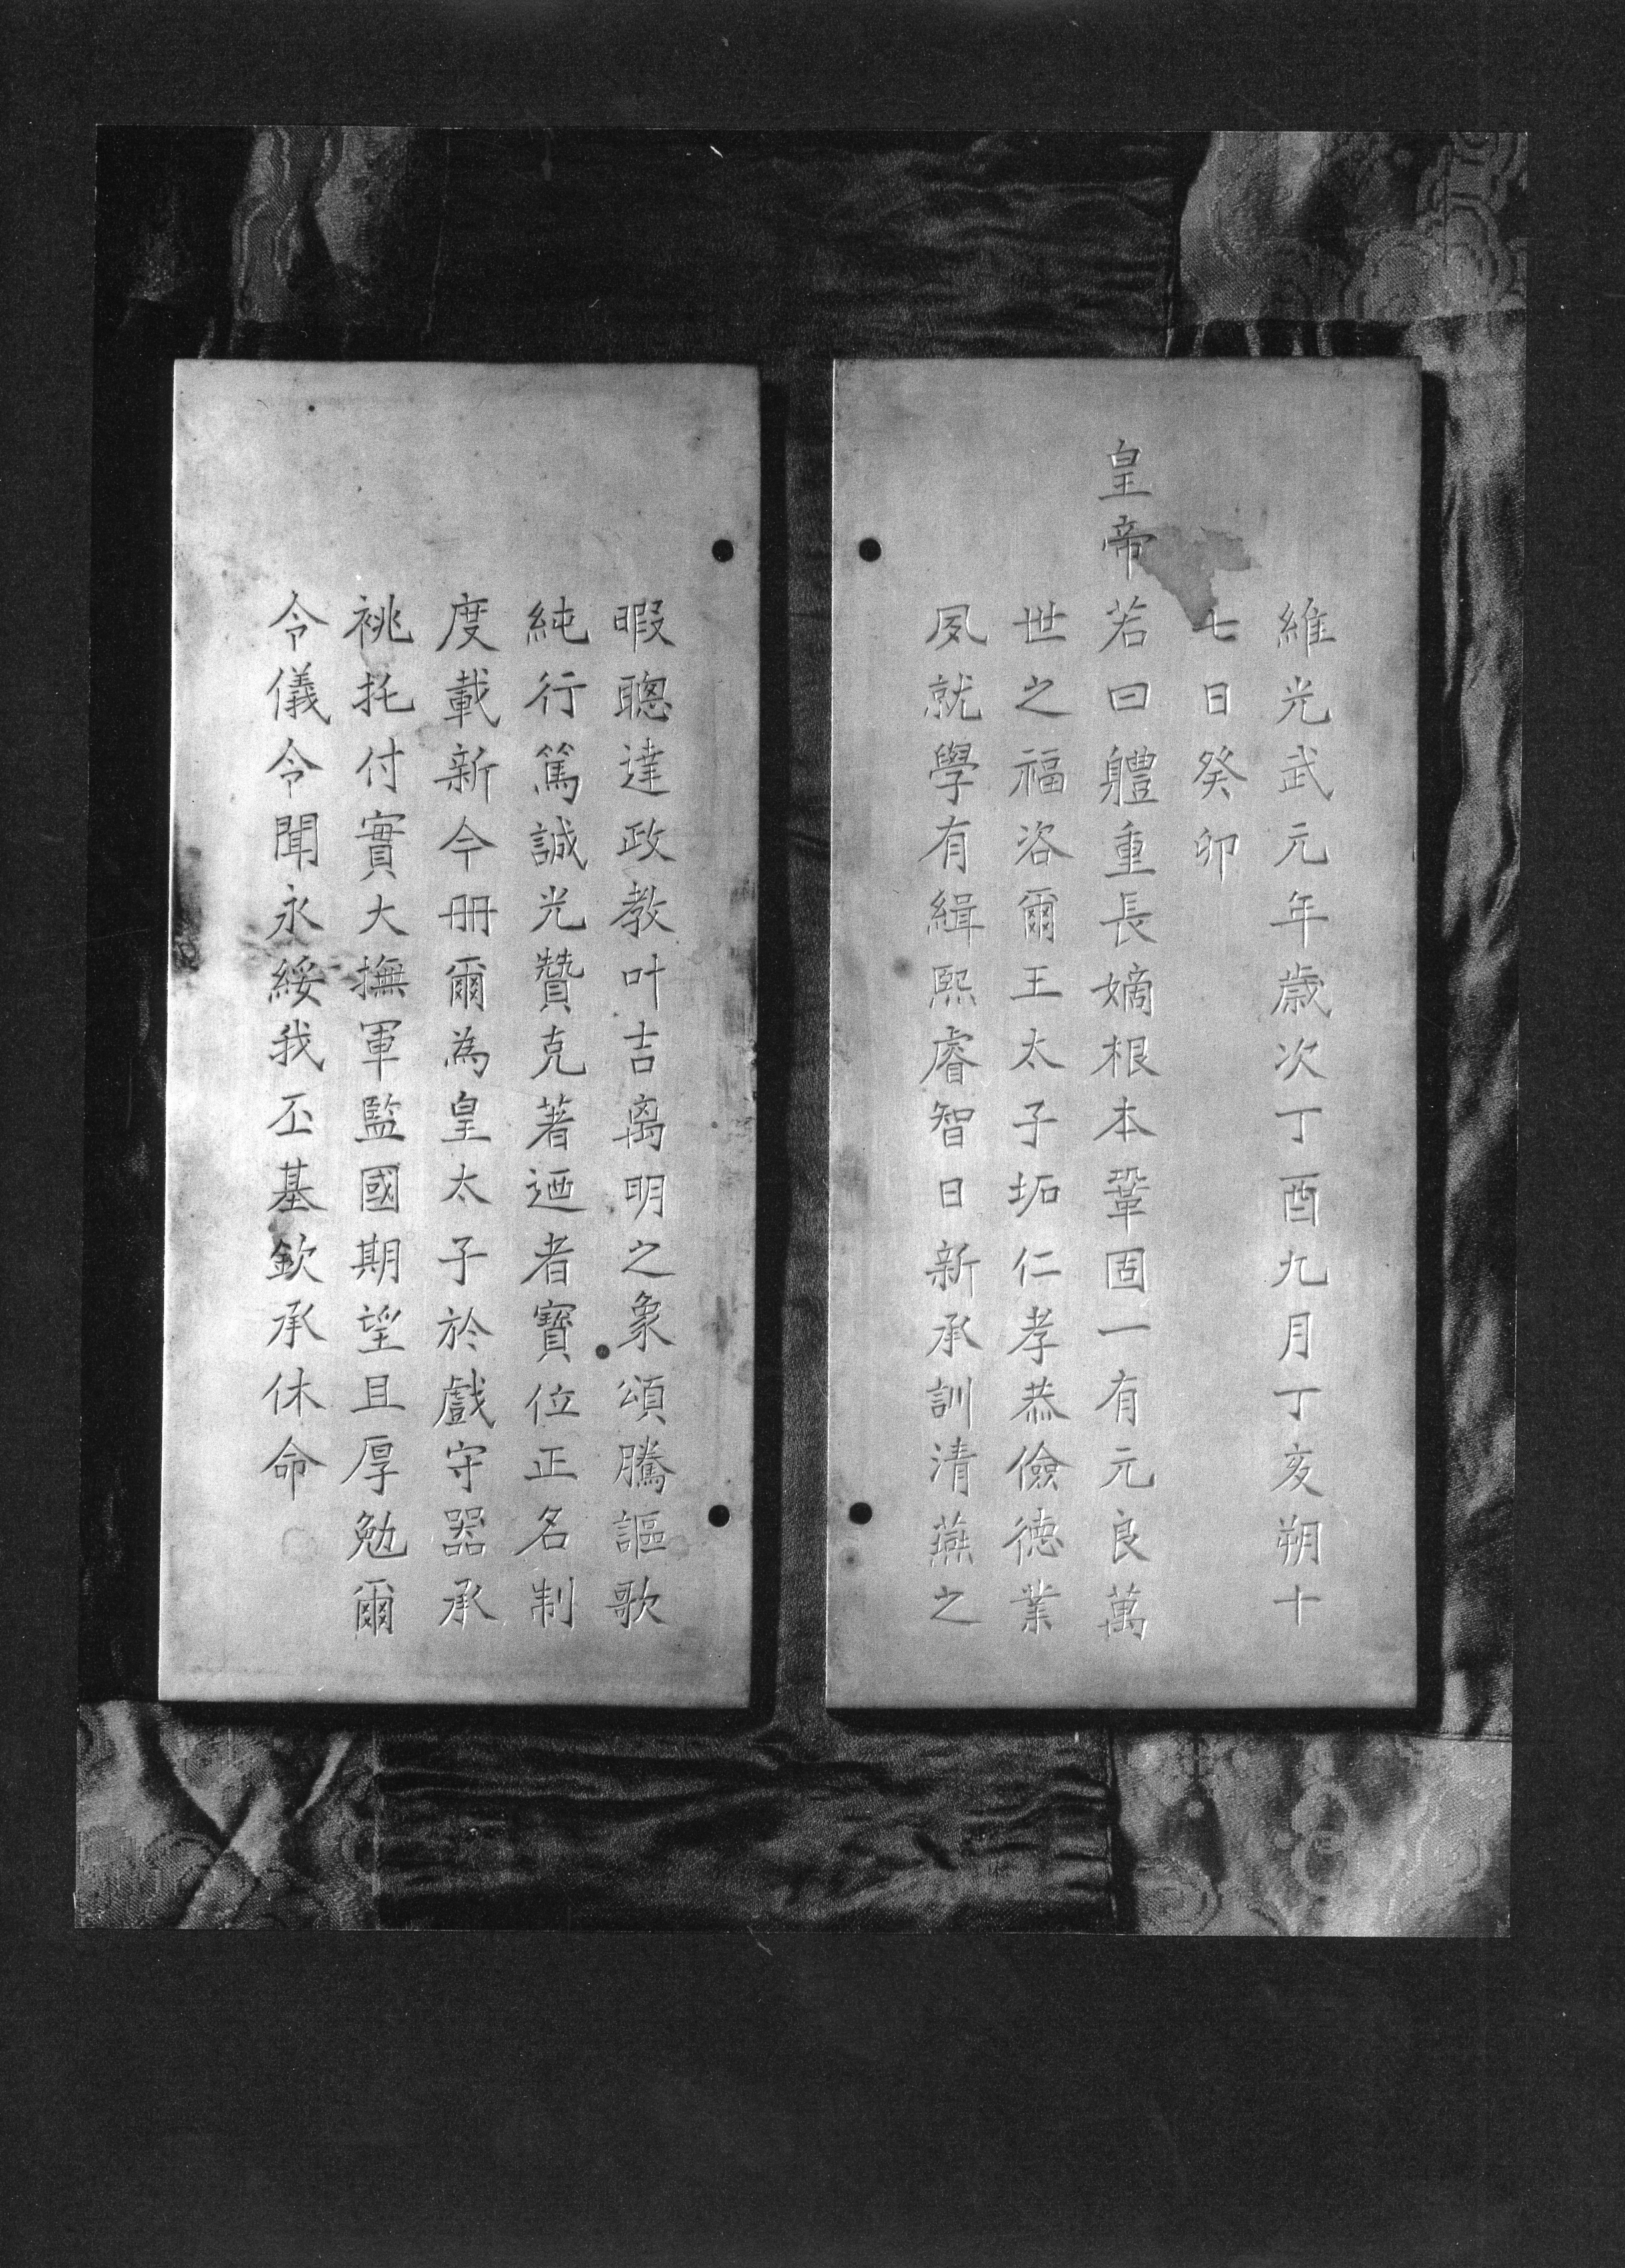 維光武元年歲次丁酉九月丁亥朔十
七日癸卯
皇帝若曰軆重長嫡根本鞏固一有元良萬
世之福咨爾王太子坧仁孝恭儉德業
夙就學有緝熙睿智日新承訓清燕之
暇聰達政教叶吉离明之象頌騰謳歌
純行篤誠光贊克著迺者寶位正名制
度載新今册爾為皇太子於戲守器承
祧托付實大撫軍監國期望且厚勉爾
令儀令聞永綏我丕基欽承休命